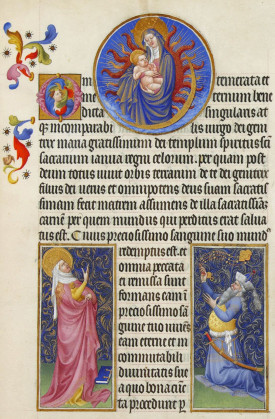 m temerata et
me ternum bene
dicta singularis at
q; incomparabi lis uirgo dei gen
trix maria gratissimum dei templum spiritus sā
sacrarium ianua regni celorum. per quam post
deum totus uiuit orbis terrarum de te dei genitrix
filius dei uerus et omnipotens deus suam sacratis
simam fecit matrem assumens de illa sacratissiā
carnē per quem mundus qui perditus erat salua
tus est. Cuius preciosissimo sanguine suo mund
redemptus est. et
omnia peccata
ei remissa sunt
formans eam
preciosissimo sā
guine tuo
eam eterne et in
commutabili
diuinitatis sue
a quo bona cun
ta procedunt p